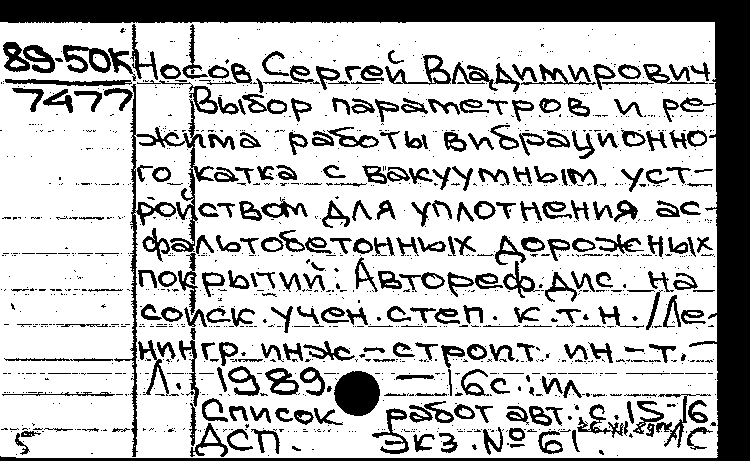 89-50К Носов, Сергей Владимирович
7477 Выбор параметров и ре-
жима работы вибрационно-
го катка с вакуумным уст-
ройством для уплотнения ас-
фальтобетонных дорожных
покрытий: Автореф. дис. на
соиск. учен. степ. к.т.н. / Ле-
нингр. инж.-строит. ин-т. -
Л., 1989. — 16с.: ил
Список работ авт.: с. 15-16.
5 ДСП. Экз. № 61. ЛС